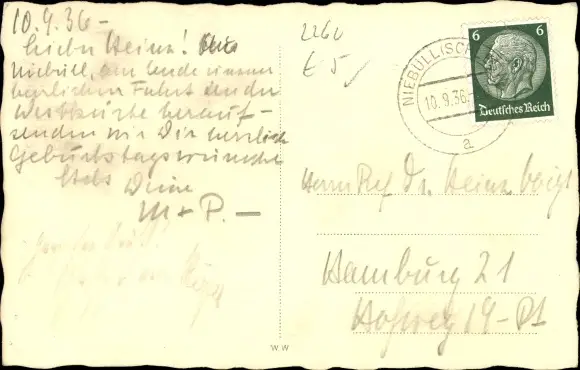 10.9.36 -
Lieber Heinz! Aus
Niebüll, am Ende unserer
herrlichen Fahrt an der
Westküste herauf -
senden wir Dir herzlich
Geburtstagswünsche
Stets Deine
M + P. -
2262
€ 5
NIEBÜLL (SCH
10.9.36
a
6 6
Deutsches Reich
Herrn Ref. Dr. Heinz Voigt
Hamburg 21
Hofweg 19 - Pt
WW